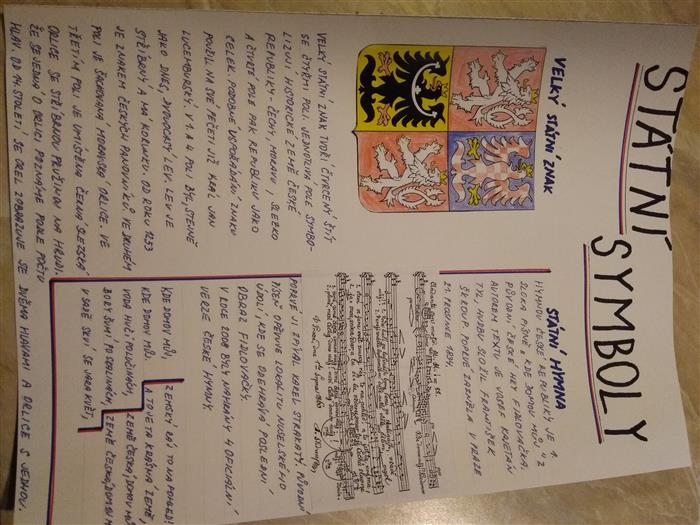 STÁTNÍ
SYMBOLY
VELKÝ STÁTNÍ ZNAK
VELKÝ STÁTNÍ ZNAK TVOŘÍ ČTVRCENÝ ŠTÍT
SE ČTYŘMI POLI. JEDNOTLIVÁ POLE SYMBO-
LIZUJÍ HISTORICKÉ ZEMĚ ČESKÉ
REPUBLIKY - ČECHY, MORAVU, SLEZSKO
A ČTVRTÉ POLE PAK REPUBLIKU JAKO
CELEK. PODOBNÉ USPOŘÁDÁNÍ ZNAKU
POUŽIL NA SVÉ PEČETI UŽ KRÁL JAN
LUCEMBURSKÝ. V 1. A 4 POLI BYL, STEJNĚ
JAKO DNES, DVOUOCASÝ LEV. LEV JE
STŘÍBRNÝ A MÁ KORUNKU. OD ROKU 1253
JE ZNAKEM ČESKÝCH PANOVNÍKŮ. VE DRUHÉM
POLI JE ŠACHOVANÁ MORAVSKÁ ORLICE. VE
TŘETÍM POLI JE UMÍSTĚNA ČERNÁ SLEZSKÁ
ORLICE SE STŘÍBRNOU PRUŽINOU NA HRUDI.
ŽE SE JEDNÁ O ORLICI POZNÁME PODLE POČTU
HLAV. OD 14. STOLETÍ SE OREL ZOBRAZUJE SE DVĚMA HLAVAMI A ORLICE S JEDNOU.
STÁTNÍ HYMNA
HYMNOU ČESKÉ REPUBLIKY JE 1.
SLOKA PÍSNĚ „KDE DOMOV MŮJ" Z
PŮVODNÍ ČESKÉ HRY FIDLOVAČKA.
AUTOREM TEXTU JE JOSEF KAJETÁN
TYL, HUDBU SLOŽIL FRANTIŠEK
ŠKROUP. POPRVÉ ZAZNĚLA V PRAZE
21. PROSINCE 1834.
POPRVÉ JI ZPÍVAL KAREL STRAKATÝ. PŮVODNÍ
PÍSEŇ OPĚVUJE LOKALITU NUSELSKÉHO
ÚDOLÍ, KDE SE ODEHRÁVÁ POSLEDNÍ
OBRAZ FIDLOVAČKY.
V ROCE 2008 BYLY NAHRÁNY 4 OFICIÁLNÍ
VERZE ČESKÉ HYMNY.
KDE DOMOV MŮJ,
KDE DOMOV MŮJ.
VODA HUČÍ PO LUČINÁCH,
BORY ŠUMÍ PO SKALINÁCH,
V SADĚ SKVÍ SE JARA KVĚT,
ZEMSKÝ RÁJ TO NA POHLED!
A TO JE TA KRÁSNÁ ZEMĚ,
ZEMĚ ČESKÁ, DOMOV MŮJ
ZEMĚ ČESKÁ, DOMOV M